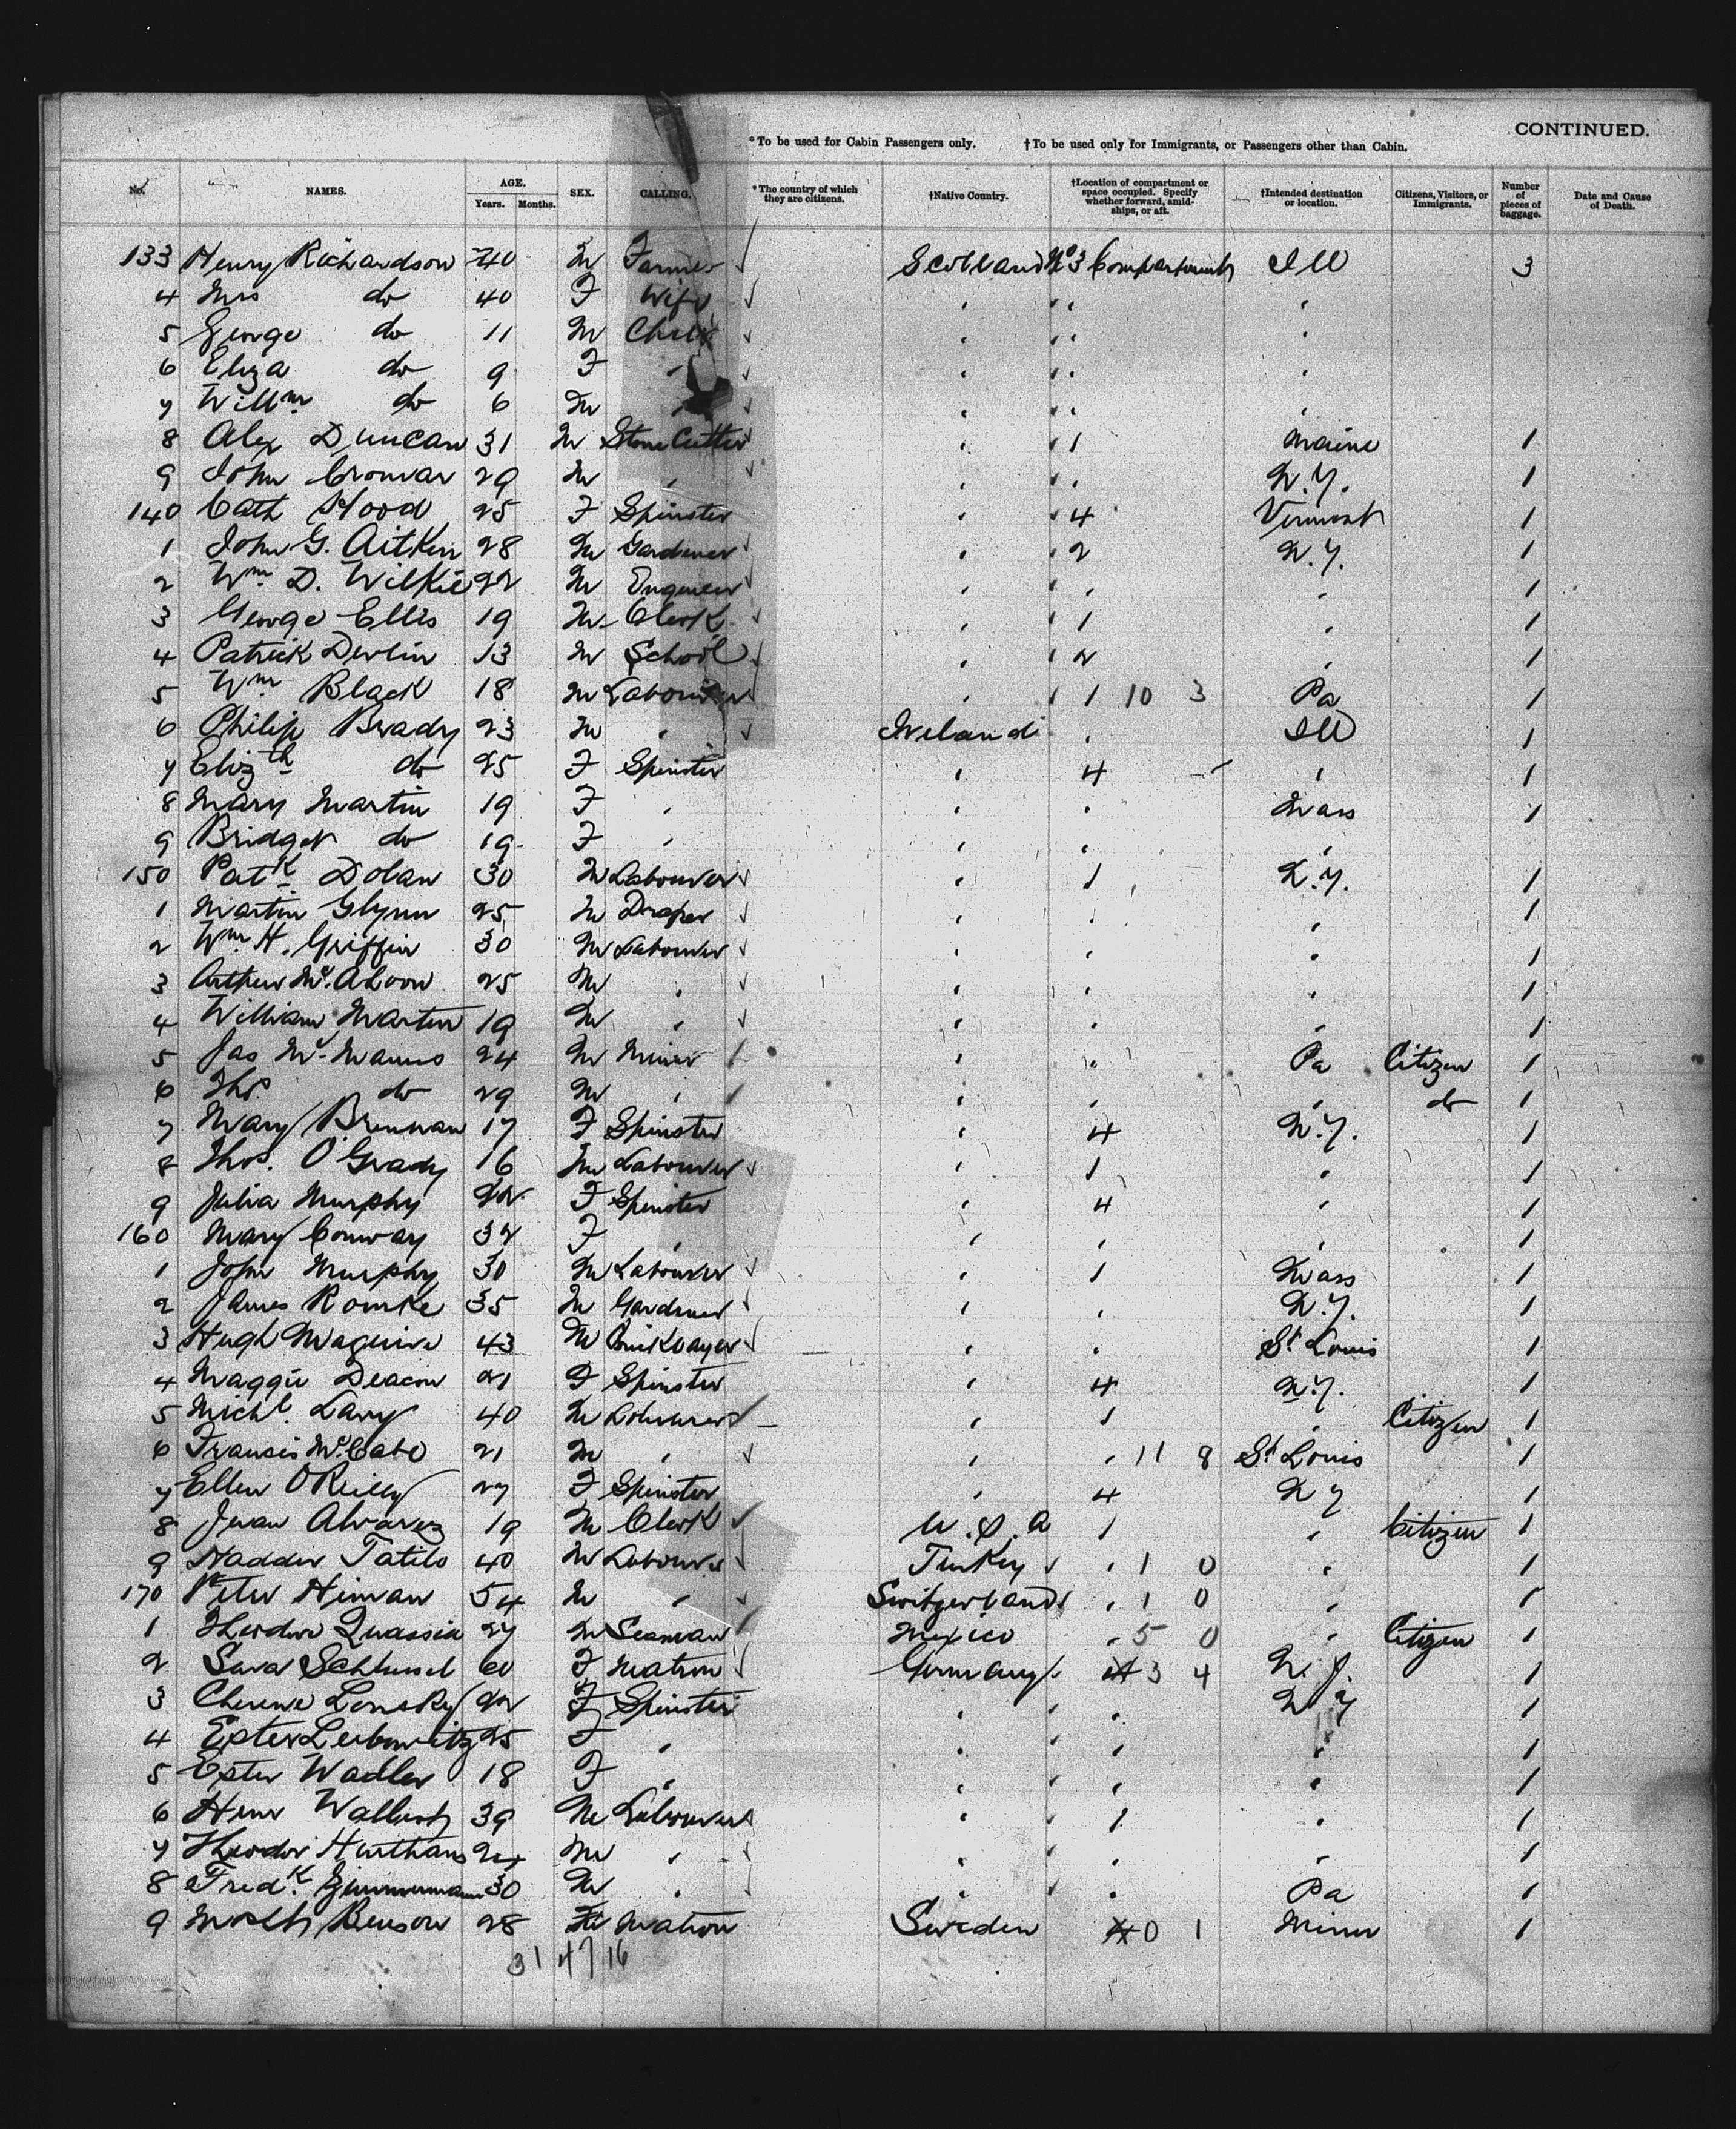 CONTINUED.
*To be used for Cabin Passengers only. †To be used only for Immigrants, or Passengers other than Cabin.
No. NAMES. AGE. Years. Months. SEX. CALLING. *The country of which they are citizens. †Native Country. †Location of compartment or space occupied. Specify whether forward, amidships, or aft. †Intended destination or location. Citizens, Visitors, or Immigrants. Number of pieces of baggage. Date and Cause of Death.
133 Henry Richardson 40 M Farmer Scotland No 3 Compartment Ill 3
4 Mrs do 40 F Wife " " "
5 George do 11 M Child " " "
6 Eliza do 9 F " " " "
7 Willm do 6 M " " " "
8 Alex Duncan 31 M Stone Cutter " " 1 Maine 1
9 John Cromar 29 M " " " " N.Y. 1
140 Cath Hood 25 F Spinster " " 4 Vermont 1
1 John G. Aitken 28 M Gardener " " 2 N.Y. 1
2 Wm D. Wilkie 22 M Engineer " " " " 1
3 George Ellis 19 M Clerk " " 1 " 1
4 Patrick Devlin 13 M School " " 2 " 1
5 Wm Black 18 M Labourer " " 1 10 3 Pa 1
6 Philip Brady 23 M " Ireland " Ill 1
7 Elizth do 25 F Spinster " 4 " 1
8 Mary Martin 19 F " " " Mass 1
9 Bridget do 19 F " " " "
150 Patk Dolan 30 M Labourer " 1 N.Y. 1
1 Martin Glynn 25 M Draper " " " 1
2 Wm H. Griffin 30 M Labourer " " " 1
3 Arthur Mc 25 M " " " " 1
4 William Martin 19 M " " " " 1
5 Jas McManus 24 M Miner " " Pa Citizen 1
6 Thos do 29 M " " " " do 1
7 Mary Brennan 17 F Spinster " 4 N.Y. 1
8 Thos. O'Grady 16 M Labourer " 1 " 1
9 Julia Murphy 22 F Spinster " 4 " 1
160 Mary Conway 32 F " " " " 1
1 John Murphy 30 M Labourer " 1 Mass 1
2 James Rourke 35 M Gardner " " N.Y. 1
3 Hugh Maguire 43 M Bricklayer " " St Louis 1
4 Maggie Deacon 21 F Spinster " 4 N.Y. 1
5 Michl. Lavy 40 M Labourer " 1 " Citizen 1
6 Francis McCabe 21 M " " " 11 8 St Louis 1
7 Ellen O'Reilly 27 F Spinster " 4 N Y 1
8 Juan Alvarez 19 M Clerk U.S.A 1 " Citizen 1
9 Haddir Tatilo 40 M Labourer Turkey " 1 0 " 1
170 Peter Himan 54 M " Switzerland " 1 0 " 1
1 Theodore Quassia 27 M Seaman Mexico " 5 0 " Citizen 1
2 Sara 60 F Matron Germany 4 3 4 N.J. 1
3 Lonsky 22 F Spinster " " " N Y 1
4 Ester Leibowitz 25 F " " " " " 1
5 Ester Wadler 18 F " " " " " 1
6 39 M Labourer " 1 " 1
7 Theodor M " " " " 1
8 Fredk Zimmermann 30 M " " " " Pa 1
9 Benson 28 F Matron Sweden 4 0 1 Minn 1
31 47 16